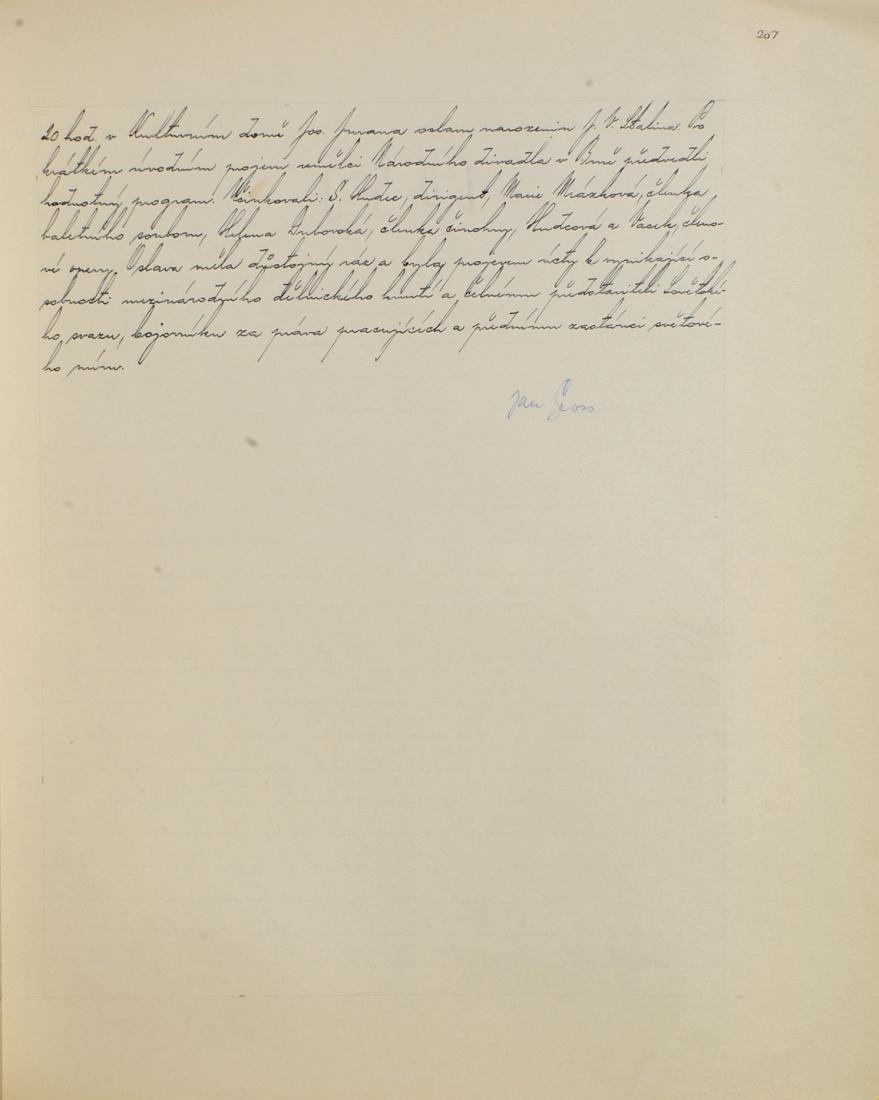 207
20 hod. v Kulturním domě Jos. Jurana oslavu narozenin J. V. Stalina. Po
krátkém úvodním projevu umělci Národního divadla v Brně předvedli
hodnotný program. Účinkovali: S. Hudec, dirigent, Marie Mrázková, členka
baletního souboru, Helena Dubovská, členka činohry, Hudcová a Vacek, čle-
vé opery. Oslava měla důstojný ráz a byla projevem úcty k vynikající o-
sobnosti mezinárodního dělnického hnutí a čelnému představiteli Sovětské-
ho svazu, bojovníku za práva pracujících a přednímu zastánci světové-
ho míru.
Jan